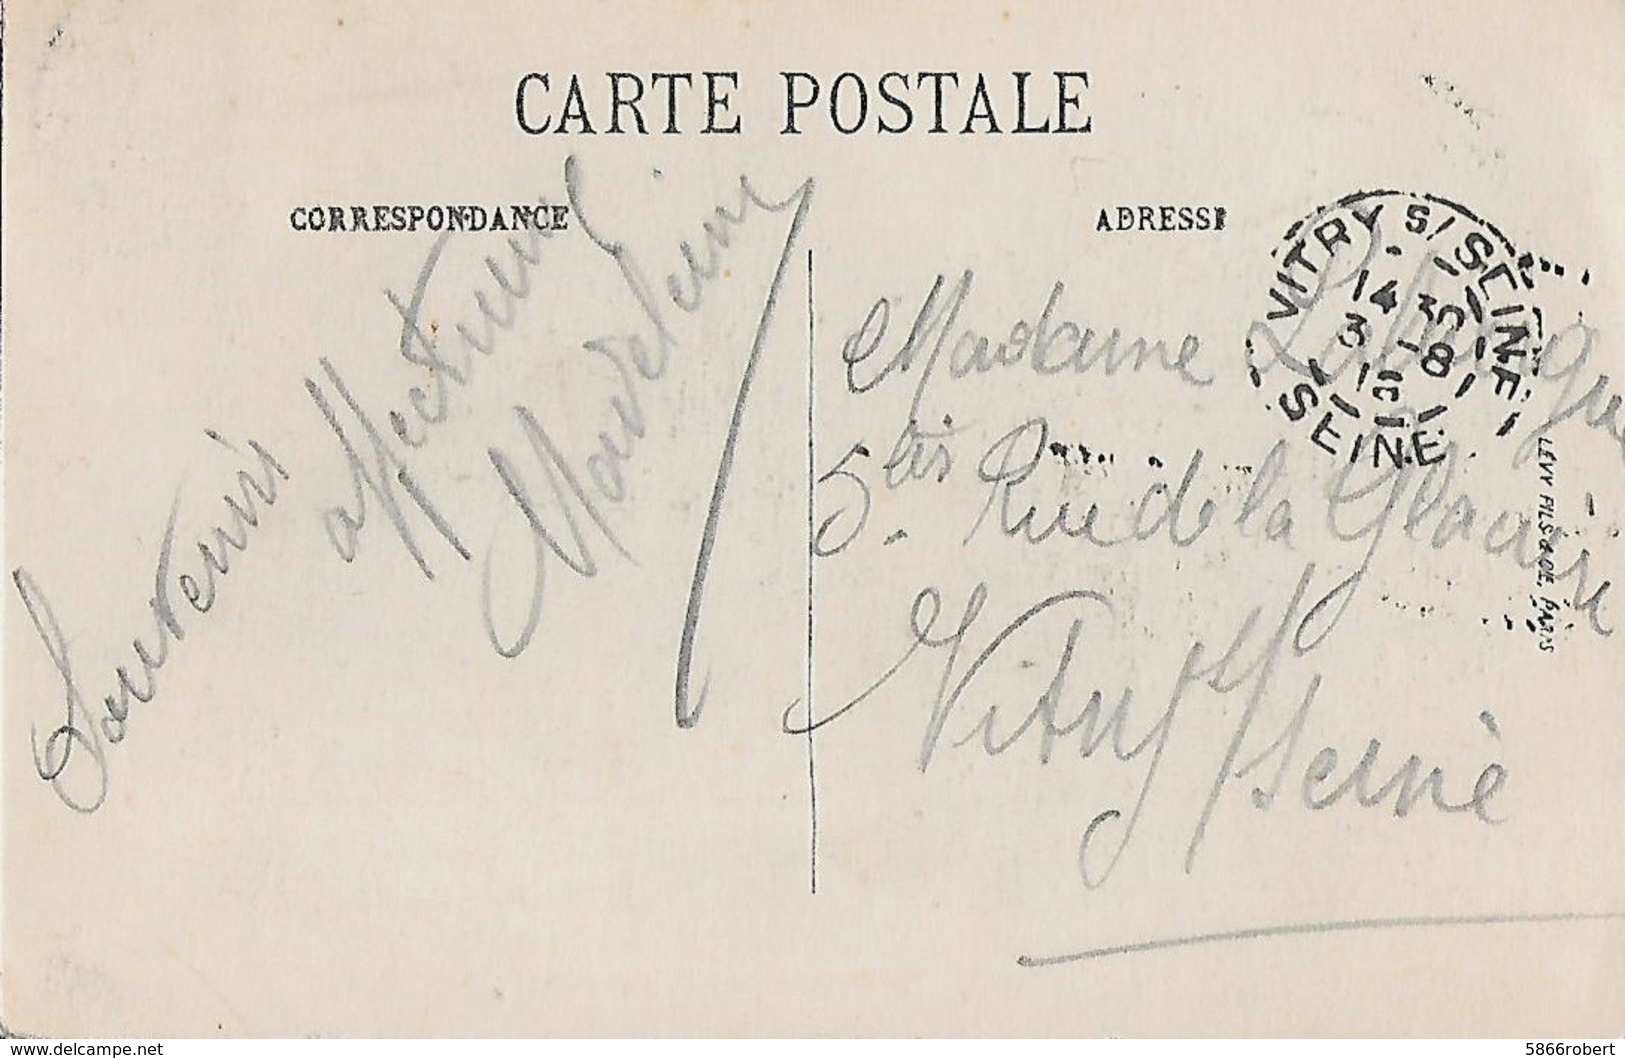 CARTE POSTALE
CORRESPONDANCE
ADRESSE
Souvenir
affectueux
Madeleine
Madame
5 bis Rue de la Glacière
Vitry s/ Seine
VITRY S/ SEINE
14 30
3 - 8
SEINE
LÉVY FILS & CIE, PARIS
www.delcampe.net
5866robert